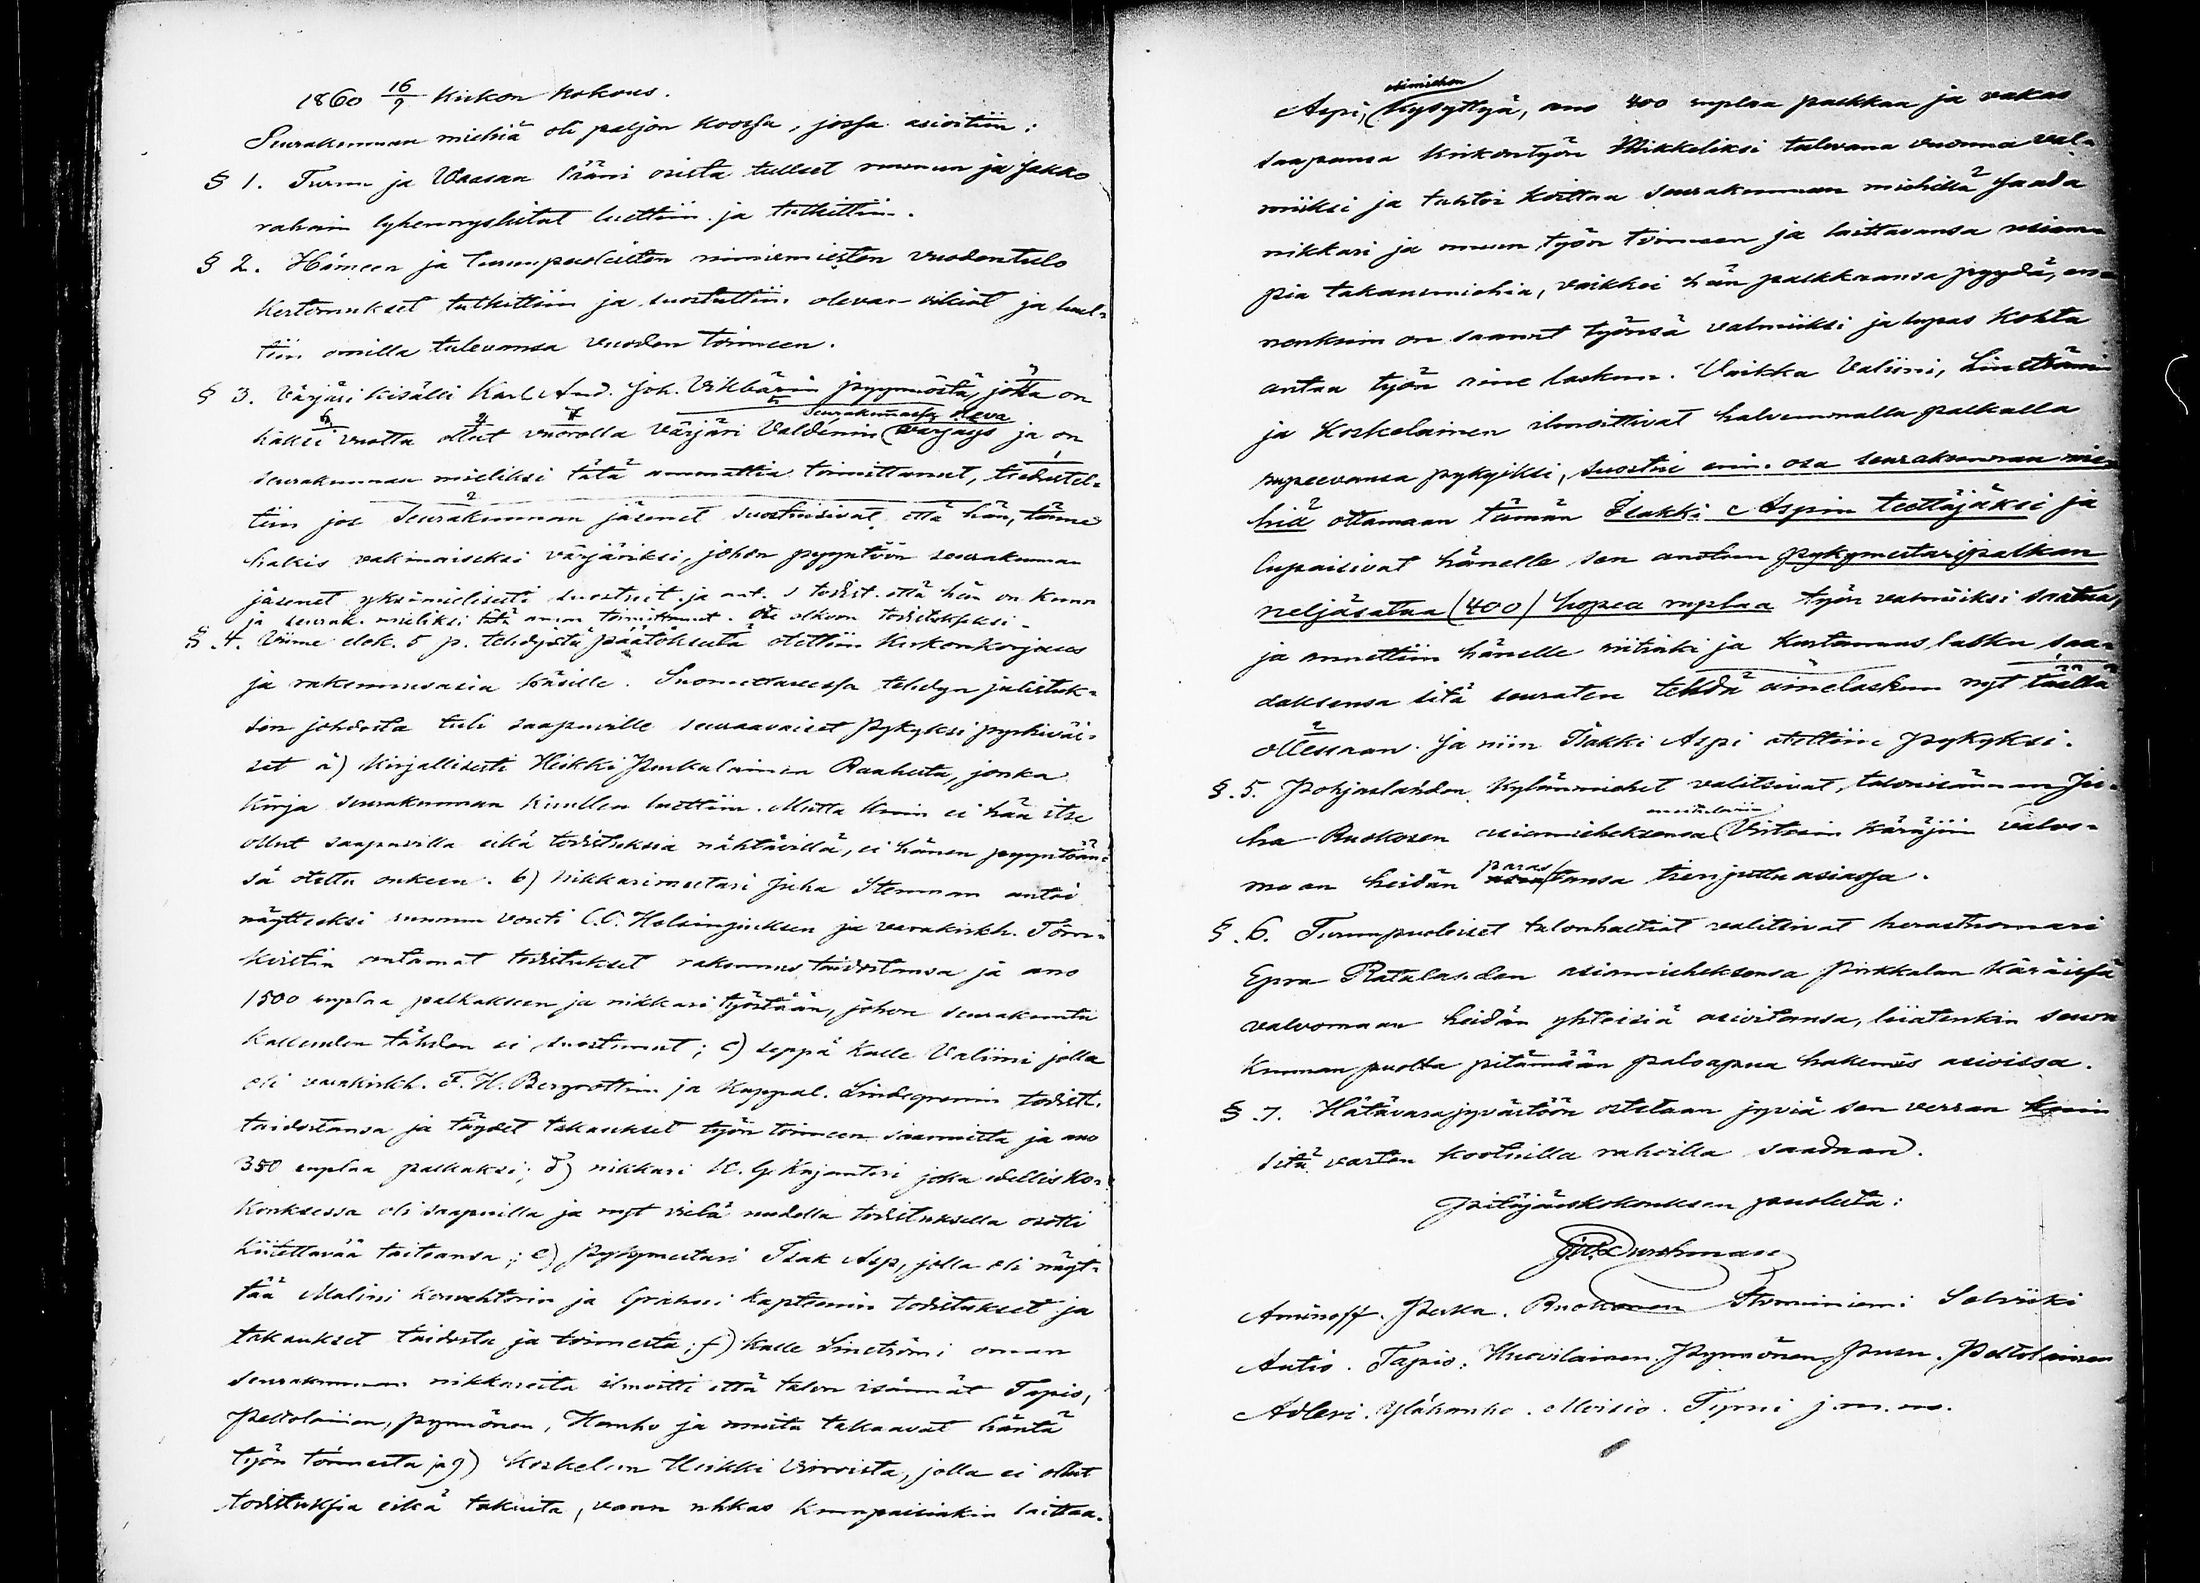 1860 16/9 Kirkon kokous.
Seurakunnan miehiä oli paljon koossa, jossa asioitiin:
§ 1. Turun ja Waasan lääni osista tulleet ruunun ja Jakko
rahain lyhennyslistat luettiin ja tutkittiin.
§ 2. Hämeen ja Turunpuoleisten nimismiesten vuodentulo
kertomukset tutkittiin ja suostuttiin olevan oikiat ja luul-
tiin omilla tulevansa vuoden toimeen.
§ 3. Värjäri kisälli Karl And. Joh. Vikbärin pyynnöstä, joka on
kaksi vuotta ollut vuorolla värjäri Valdenin (seurakunnassa oleva värjäys ja on
seurakunnan mieliksi tätä ammattia toimittanut, tiedustel-
tiin jos Seurakunnan jäsenet suostuisivat että hän, tänne
hakis vakinaiseksi värjäriksi, johon pyyntöön seurakunnan
jäsenet yksimielisesti suostuit ja ant. s todist. että hän on kunn
ja seurak. mieliksi tätä amm. toimittanut. Ote olkoon todistukseksi -
§ 4. Viime elok. 5 p. tehdystä päätöksestä otettiin kirkonkorjaus
ja rakennusasia käsille. Suomettaressa tehdyn julistuk-
sen johdosta tuli saapuville seuraavaiset pykyksi pyrkiväi-
set a) kirjallisesti Heikki Kuukalainen Raahesta, jonka
kirja seurakunnan kuullen luettiin. Mutta kuin ei hän itse
ollut saapuvilla eikä todistuksia nähtävillä, ei hänen pyyntöän-
sä otettu onkeen. b) nikkarimestari Juha Stenman antoi
näytteeksi ruunun vouti C.C. Helsingiuksen ja varakirkh. Törn-
kvistin antamat todistukset rakennustaidostansa ja ano
1500 ruplaa palkakseen ja nikkari työstään, johon seurakunta
kalleuden tähden ei suostunut; c) seppä Kalle Valiini jolla
oli varakirkh. F. H. Bergrothin ja Kappal. Lindegrenin todist.
taidostansa ja täydet takaukset työn toimeen saannista ja ano
350 ruplaa palkaksi; d) nikkari K. G. Kajanteri joka edellis Ko-
kouksessa oli saapuilla ja nyt vielä uudella todistuksella osotti
kiitettävää taitoansa; e) pykymestari Isak Asp, jolla oli näyt-
tää Malini konrehtorin ja Grahni kapteenin todistukset ja
takaukset taidosta ja toimesta; f) Kalle Linströmi oman
seurakunnan nikkareita ilmoitti että talon isännät Tapio,
Peltolainen, Pynnönen, Hanho ja muita takaavat häntä
työn toimesta ja g) Koskelan Heikki Virroista, jolla ei ollut
todistuksia eikä takuita, vaan uhkas kumpaisiakin laittaa.
Aspi, (kysyttyä, ano 400 ruplaa palkkaa ja vakas
saavansa kirkontyön Mikkeliksi tulevana vuonna val-
miiksi ja tahtoi koittaa seurakunnan miehiltä saada
nikkari ja muun työn toimeen ja laittavansa
pia takausmiehiä, vaikkei hän palkkaansa pyydä, en-
nenkuin on saanut työnsä valmiiksi ja lupas kohta
antaa työn aine laskun. Vaikka Valiini, Linströmi
ja Koskelainen ilmoittivat halvemmalla palkalla
rupeevansa pykyiksi, suostui enin osa seurakunnan mie-
hiä ottamaan tämän Isakki Aspin teettäjäksi ja
lupaisivat hänelle sen anotun pykymestaripalkan
neljäsataa (400) hopea ruplaa työn valmiiksi saatua,
ja annettiin hänelle riitinki ja kustannus lasku saa-
daksensa sitä seuraten tehdä ainelaskun nyt täällä
ollessaan. Ja niin Isakki Aspi otettiin pykyksi.
§. 5. Pohjaslahden kylänmiehet valitsivat, talonisännän Ju-
ha Ruokosen asiamieheksensa Virtain käräjiin valvo-
maan heidän parastansa tienjuttuasiassa.
§. 6. Turunpuoleiset talonhaltiat valitsivat herastuomari
Epra Ratalahden asiamieheksensa Pirkkalan Käräissä
valvomaan heidän yhteisiä asioitansa, liiatenkin seura
kunnan puolta pitämään paloapua hakemis asioissa.
§. 7. Hätävarajyvästöön ostetaan jyviä sen verran kuin
sitä varten kootuilla rahoilla saadaan.
Pitäjänkokouksen puolesta:
Durchman
Aminoff. Perka. Ruokonen Strominiemi Solriski
Autio. Tapio. Huovilainen. Pynnönen, Puru. Peltolainen
Adleri. Ylähanho. Moisio. Tyrni j.m.m.